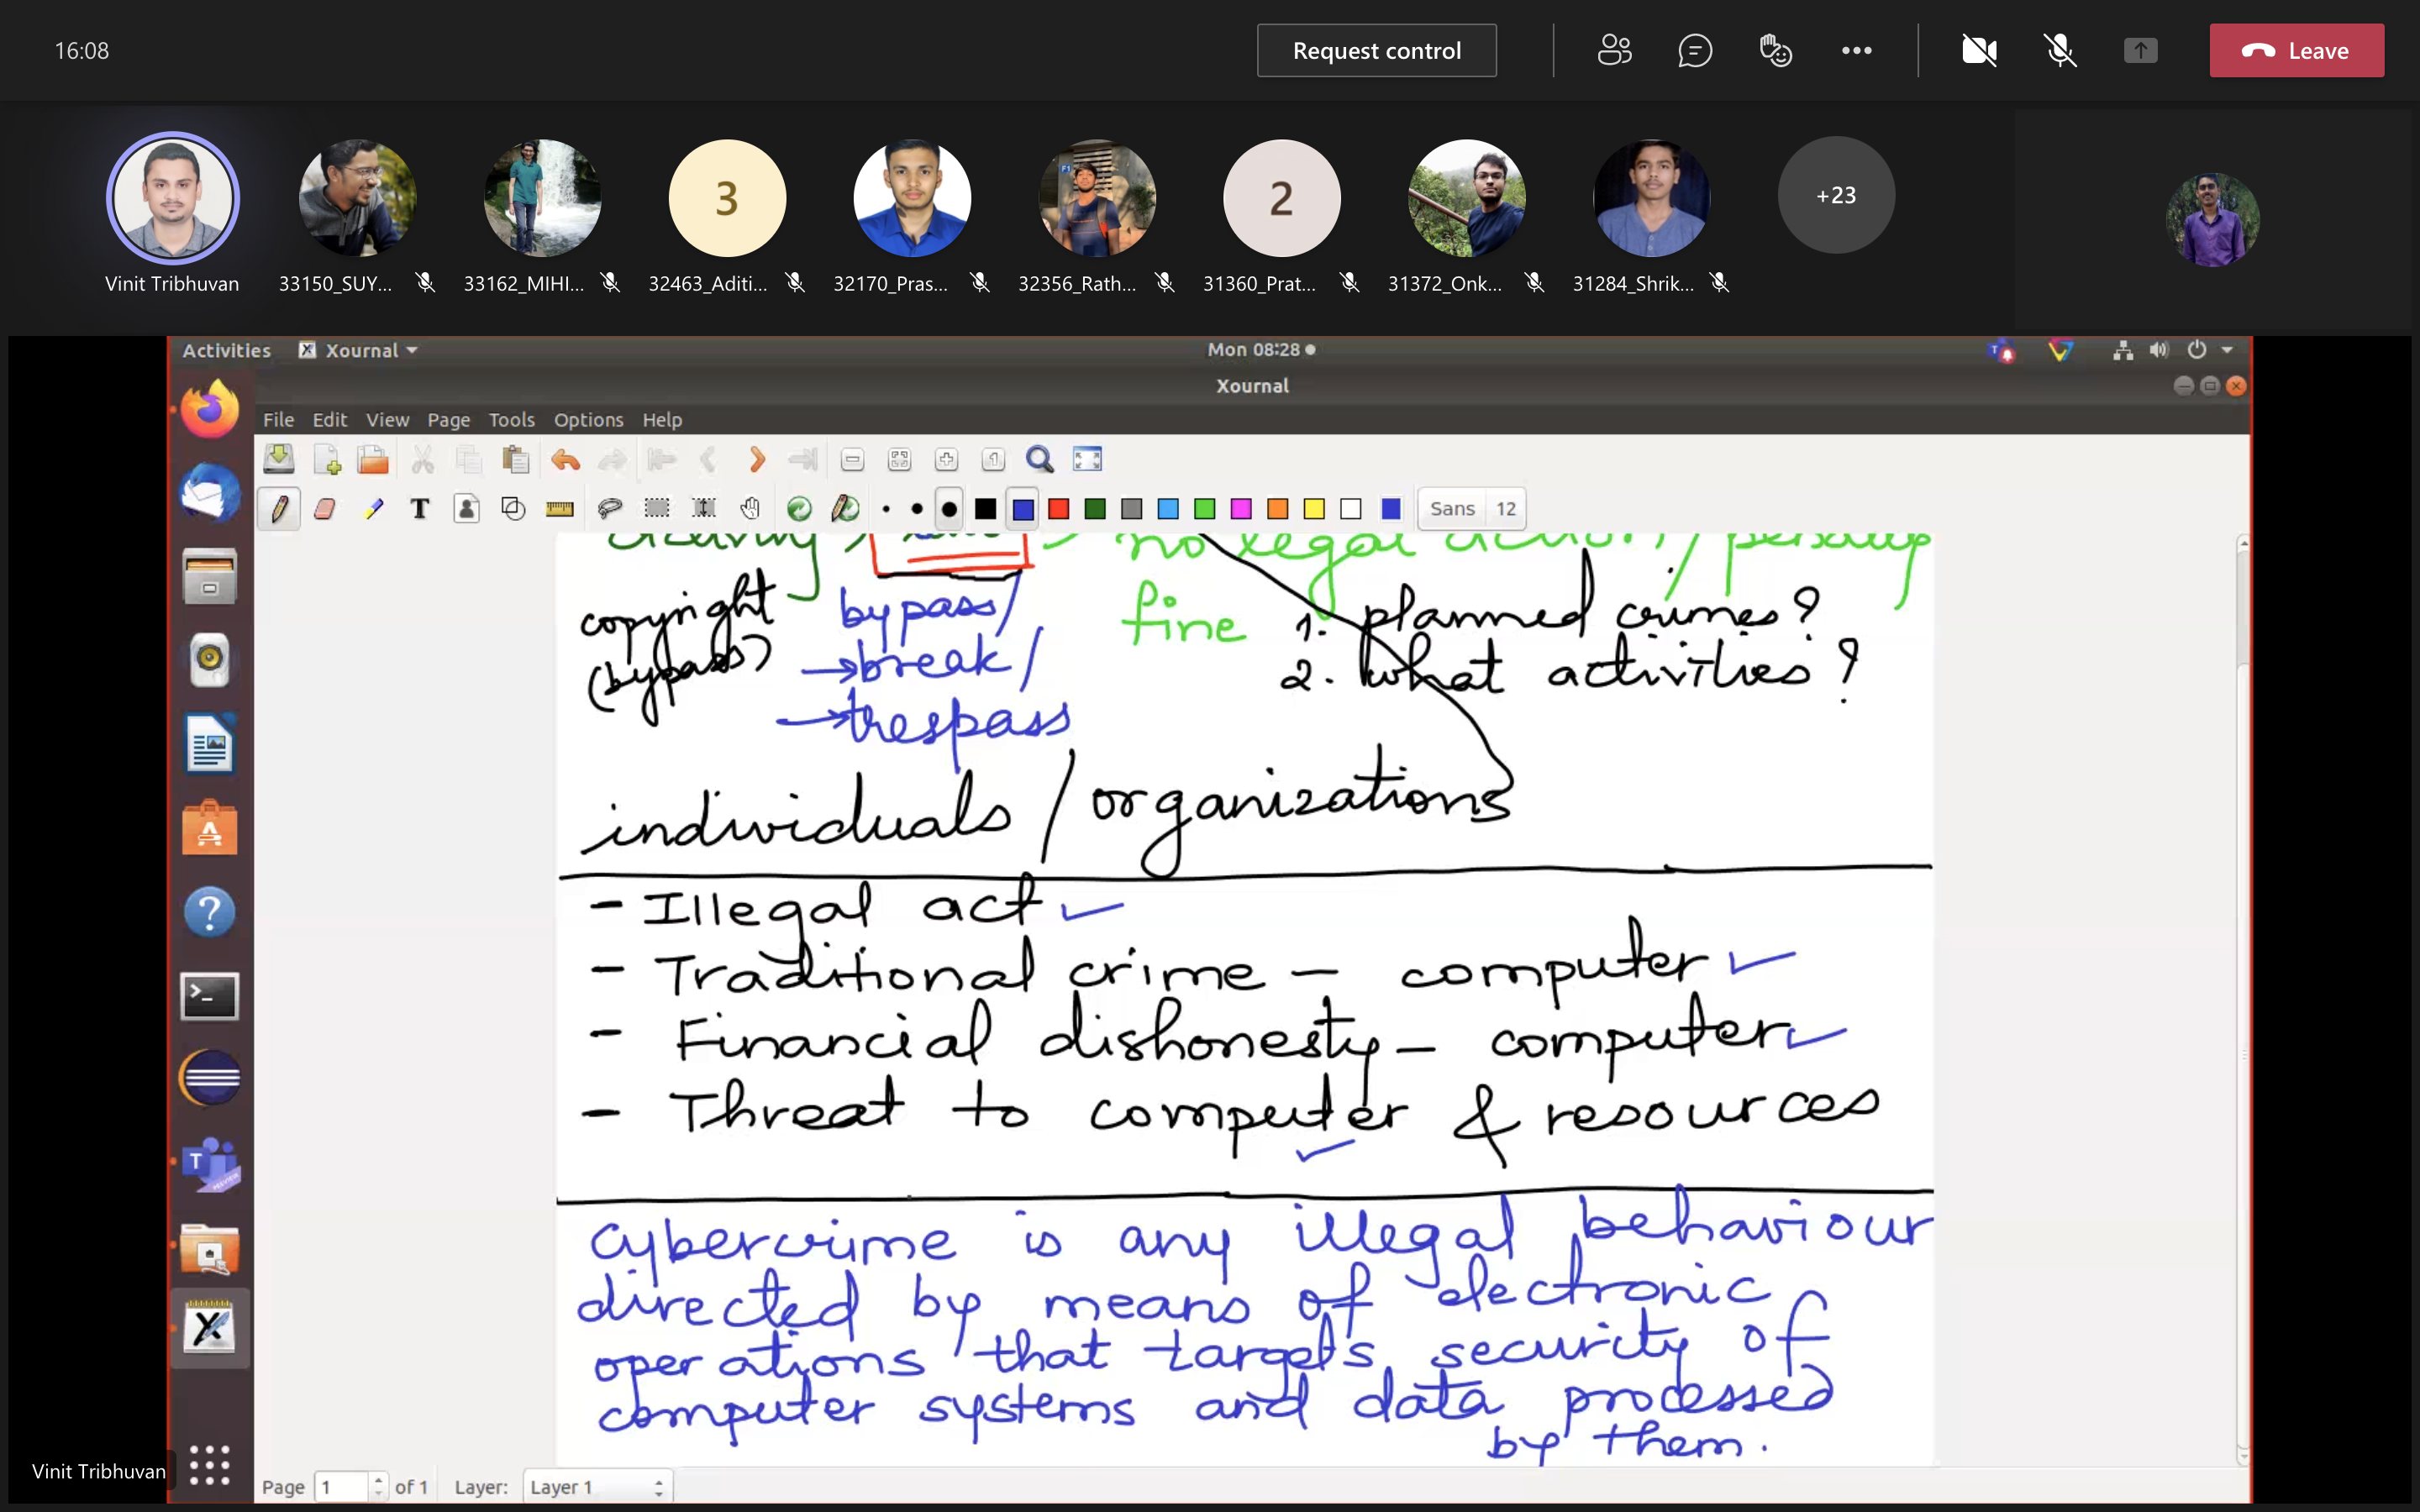 16:08
Request control
Leave
3
2
+23
Vinit Tribhuvan
33150_SUY...
33162_MIHI...
32463_Aditi...
32170_Pras...
32356_Rath...
31360_Prat...
31372_Onk...
31284_Shrik...
Activities Xournal Mon 08:28
Xournal
File Edit View Page Tools Options Help
Sans 12
no legal action / penalty
fine
copyright
(bypass)
bypass/
→break/
→trespass
1. planned crimes?
2. What activities?
individuals / organizations
- Illegal act
- Traditional crime - computer
- Financial dishonesty - computer
- Threat to computer & resources
Cybercrime is any illegal behaviour
directed by means of electronic
operations that targets security of
computer systems and data processed
by them.
Vinit Tribhuvan
Page 1 of 1 Layer: Layer 1